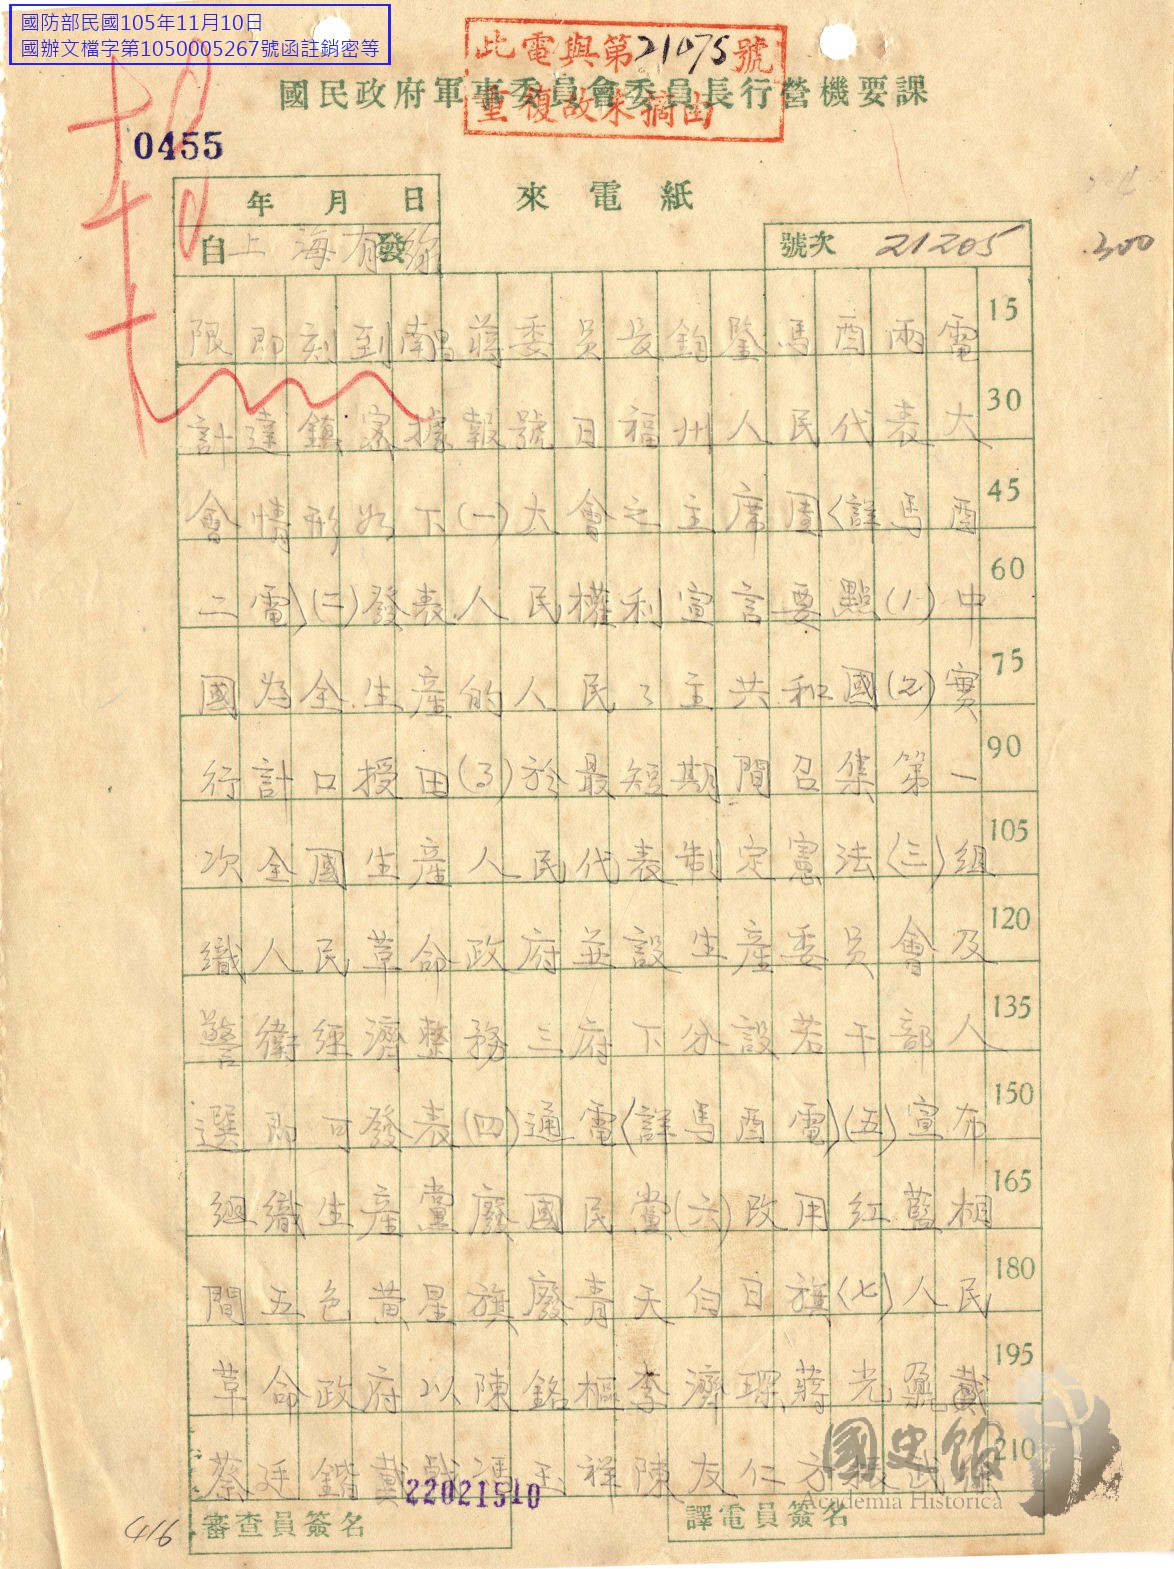 國防部民國105年11月10日
國辦文檔字第1050005267號函註銷密等
此電與第21075號
重複故未摘由
國民政府軍事委員會委員長行營機要課
0455
年 月 日
來電紙
自上海有 發
號次 21205
300
限即刻到南昌蔣委員長鈞鑒馬酉兩電 15
計達鎮密據報號日福州人民代表大 30
會情形如下(一)大會之主席團(詳馬酉 45
二電)(二)發表人民權利宣言要點(1)中 60
國為全生產的人民々主共和國(2)實 75
行計口授田(3)於最短期間召集第一 90
次全國生產人民代表制定憲法(三)組 105
織人民革命政府並設生產委員會及 120
警衛經濟整務三府下分設若干部人 135
選即可發表(四)通電(詳馬酉電)(五)宣布 150
組織生產黨廢國民黨(六)改用紅藍相 165
間五色黃星旗廢青天白日旗(七)人民 180
革命政府以陳銘樞李濟琛蔣光鼐戴 195
蔡廷鍇戴戟馮玉祥陳友仁方振武 210
22021510
國史館
Academia Historica
審查員簽名
譯電員簽名
416